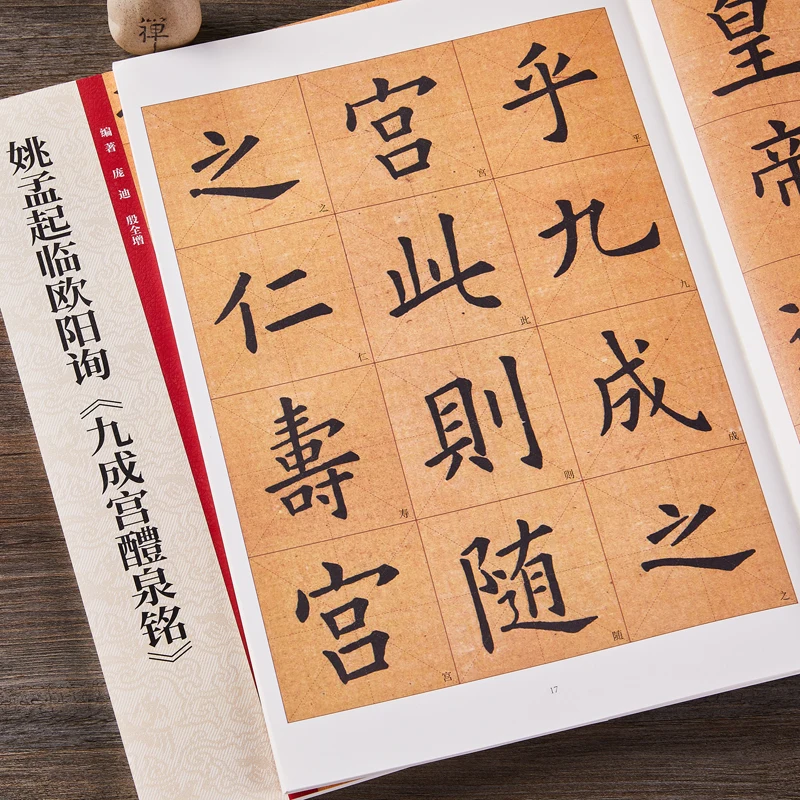 禪
编著 庞迪 殷全增
姚孟起临欧阳询《九成宫醴泉铭》
皇帝
乎九成之
乎 九 成 之
宮此則随
宮 此 則 随
之仁壽宮
之 仁 寿 宮
17